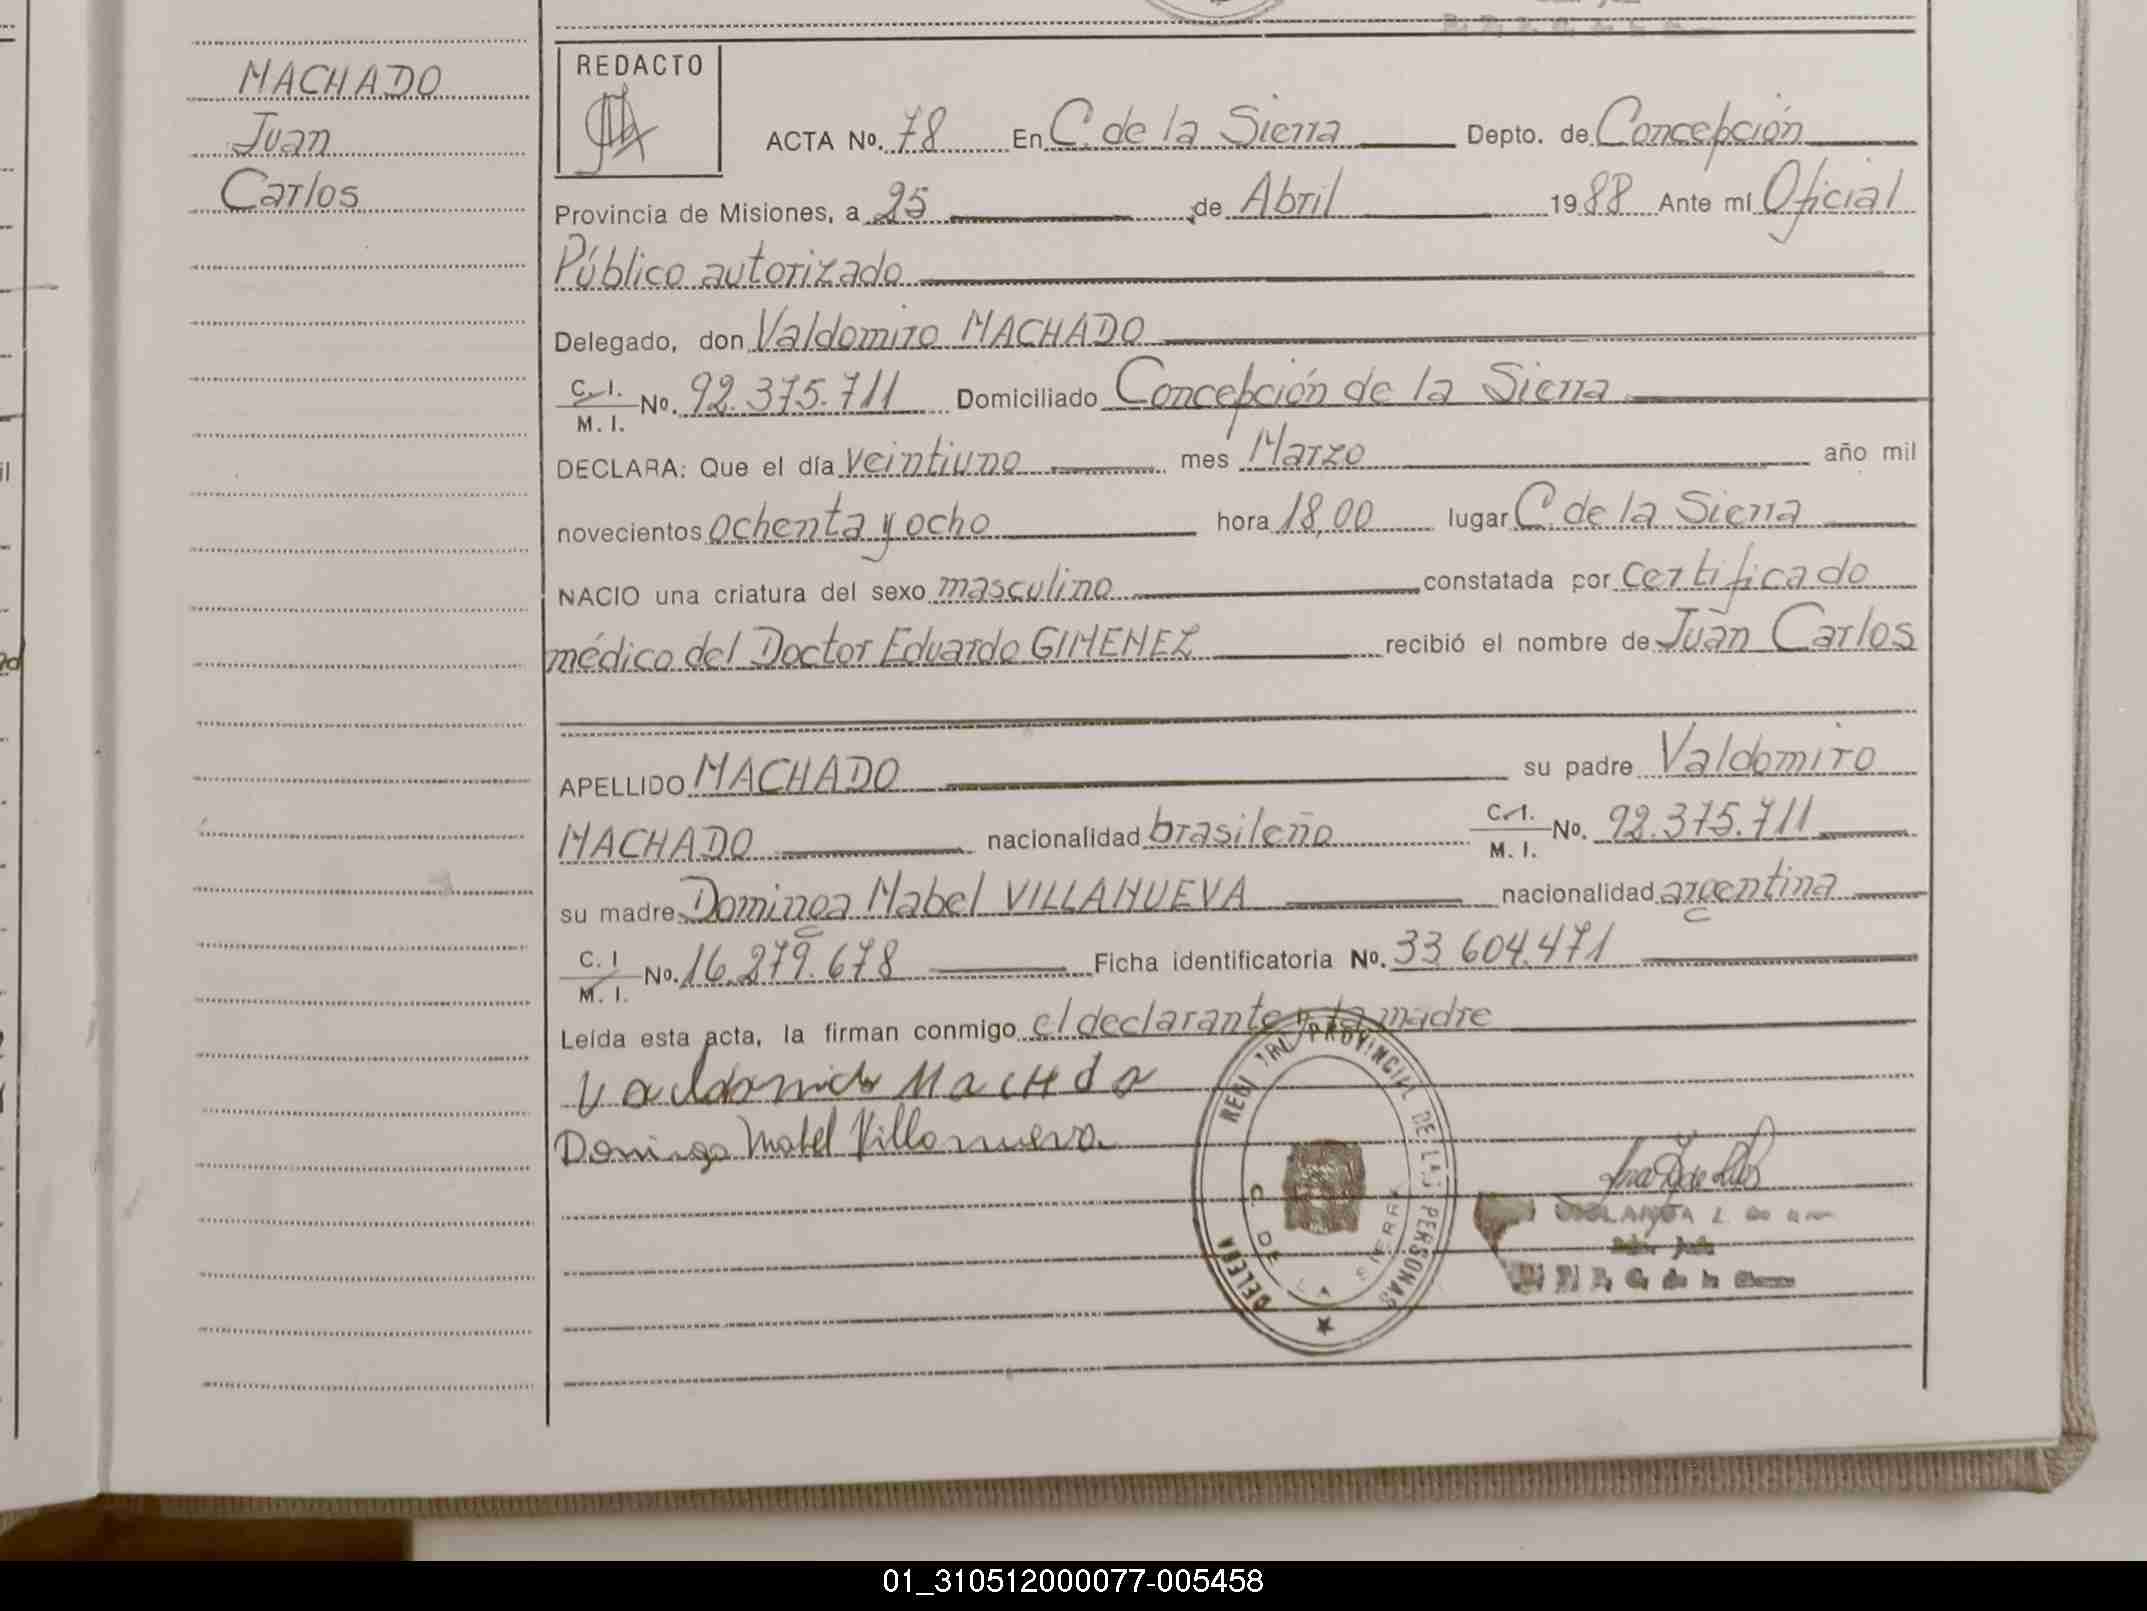 MACHADO
Juan
Carlos
REDACTO
ACTA No. 78 En C. de la Sierra Depto. de Concepción
Provincia de Misiones, a 25 de Abril 1988 Ante mí Oficial
Público autorizado
Delegado, don Valdomiro MACHADO
C. I. M. I. No. 92.375.711 Domiciliado Concepción de la Sierra
DECLARA: Que el día veintiuno mes Marzo año mil
novecientos ochenta y ocho hora 18,00 lugar C. de la Sierra
NACIO una criatura del sexo masculino constatada por certificado
médico del Doctor Eduardo GIMENEZ recibió el nombre de Juan Carlos
APELLIDO MACHADO su padre Valdomiro
MACHADO nacionalidad brasileño C. I. M. I. No. 92.375.711
su madre Dominga Mabel VILLANUEVA nacionalidad argentina
C. I M. I. No. 16.279.678 Ficha identificatoria No. 33.604.471
Leída esta acta, la firman conmigo el declarante y la madre
Valdomiro Machado
Dominga Mabel Villanueva
PROVINCIAL DE LAS PERSONAS
DE LA SIERRA
01_310512000077-005458